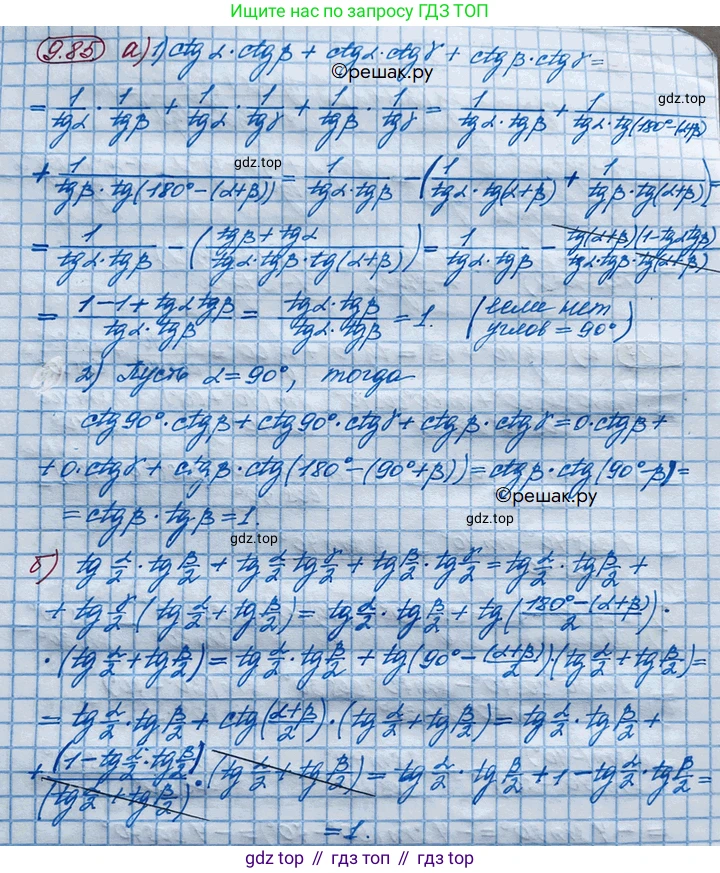 Ищите нас по запросу ГДЗ ТОП
9.85 а) 1) ctg α · ctg β + ctg α · ctg γ + ctg β · ctg γ =
©решак.ру
gdz.top
= 1/(tg α) · 1/(tg β) + 1/(tg α) · 1/(tg γ) + 1/(tg β) · 1/(tg γ) = 1/(tg α · tg β) + 1/(tg α · tg(180° − (α+β)))
gdz.top
+ 1/(tg β · tg(180° − (α+β))) = 1/(tg α · tg β) − (1/(tg α · tg(α+β)) + 1/(tg β · tg(α+β))) =
= 1/(tg α · tg β) − ((tg β + tg α)/(tg α · tg β · tg(α+β))) = 1/(tg α · tg β) − (tg(α+β)(1 − tg α tg β))/(tg α · tg β · tg(α+β))
= (1 − 1 + tg α tg β)/(tg α · tg β) = (tg α · tg β)/(tg α · tg β) = 1. (если нет углов = 90°)
2) Пусть α = 90°, тогда
ctg 90° · ctg β + ctg 90° · ctg γ + ctg β · ctg γ = 0 · ctg β +
+ 0 · ctg γ + ctg β · ctg(180° − (90° + β)) = ctg β · ctg(90° − β) =
©решак.ру
= ctg β · tg β = 1.
gdz.top
б) tg α/2 · tg β/2 + tg α/2 tg γ/2 + tg β/2 · tg γ/2 = tg α/2 · tg β/2 +
+ tg γ/2 (tg α/2 + tg β/2) = tg α/2 · tg β/2 + tg((180° − (α+β))/2) ·
gdz.top
· (tg α/2 + tg β/2) = tg α/2 · tg β/2 + tg(90° − (α+β)/2) · (tg α/2 + tg β/2) =
= tg α/2 · tg β/2 + ctg((α+β)/2) · (tg α/2 + tg β/2) = tg α/2 · tg β/2 +
+ (1 − tg α/2 · tg β/2)/(tg α/2 + tg β/2) · (tg α/2 + tg β/2) = tg α/2 · tg β/2 + 1 − tg α/2 · tg β/2 =
= 1.
gdz.top // гдз.топ // gdz.top